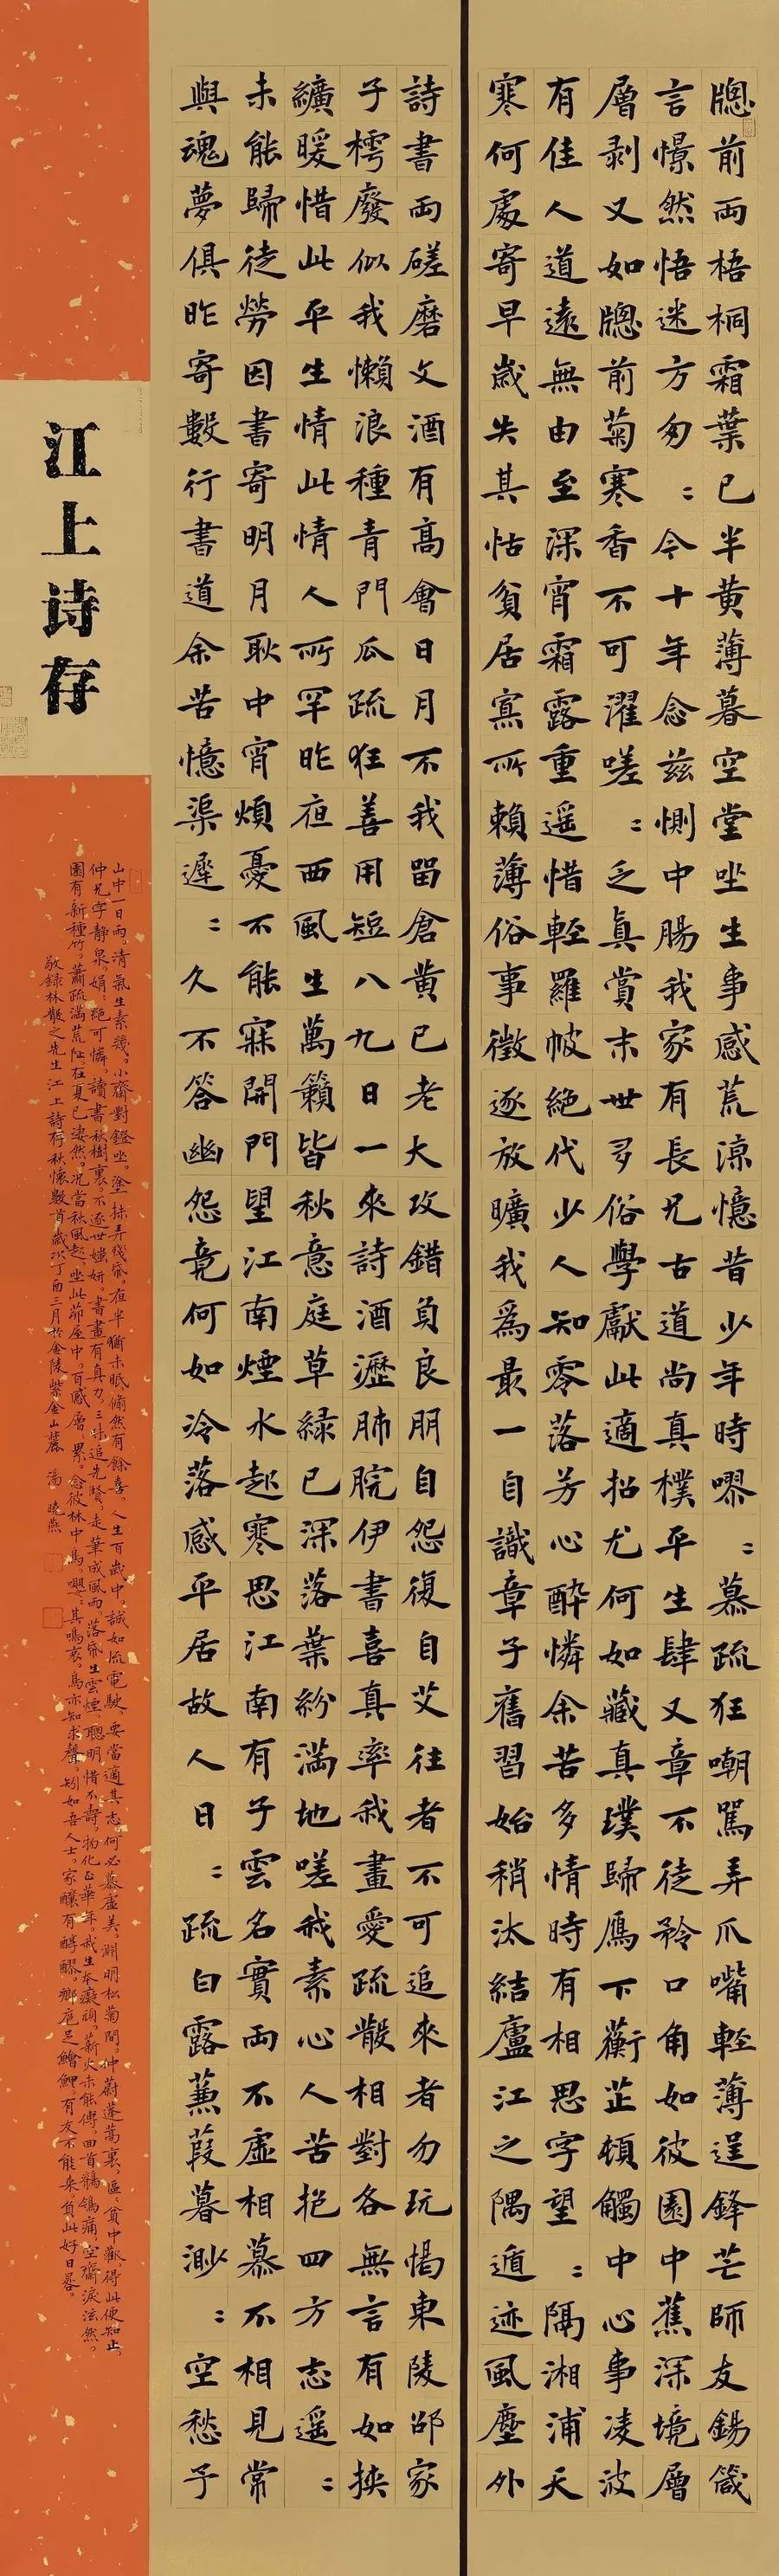 牕前兩梧桐霜葉已半黄薄暮空堂坐生事感荒涼憶昔少年時嘐〻慕疏狂嘲駡弄爪嘴輕薄逞鋒芒師友錫箴
言憬然悟迷方匆〻今十年念兹惻中腸我家有長兄古道尚真樸平生肆文章不徒矜口角如彼園中蕉深境層
層剥又如牕前菊寒香不可濯嗟〻乏真賞末世多俗學獻此適招尤何如藏真璞歸鴈下蘅芷頓觸中心事凌波
有佳人道遠無由至深宵霜露重遥惜輕羅帔絶代少人知零落芳心醉憐余苦多情時有相思字望〻隔湘浦天
寒何處寄早歲失其怙貧居寡所賴薄俗事徵逐放曠我為最一自識章子舊習始稍汰結廬江之隅遁迹風塵外
詩書兩磋磨文酒有高會日月不我留倉黄已老大攻錯負良朋自怨復自艾往者不可追來者勿玩愒東陵邵家
子樗廢似我懶浪種青門瓜疏狂善用短八九日一來詩酒瀝肺脘伊書喜真率我畫愛疏散相對各無言有如挾
纊暖惜此平生情此情人所罕昨夜西風生萬籟皆秋意庭草緑已深落葉紛滿地嗟我素心人苦抱四方志遥〻
未能歸徒勞因書寄明月耿中宵煩憂不能寐開門望江南煙水起寒思江南有子雲名實兩不虚相慕不相見常
與魂夢俱昨寄數行書道余苦憶渠遲〻久不答幽怨竟何如冷落感平居故人日〻疏白露蒹葭暮渺〻空愁予
江上诗存
山中一日雨。清氣生素幾。小齋對鐙坐。塗抹弄殘紙。夜半猶未眠。翛然有餘喜。人生百歲中。誠如流電駛。要當適其志。何必慕虚美。淵明松菊間。仲蔚蓬蒿裏。區〻貧中歡。得此便知止。
仲兄字静泉。娟〻絶可憐。讀書秋樹裏。不逐世媸妍。書畫有真力。三昧追先賢。走筆成風雨。落紙生雲煙。聰明惜不壽。物化正華年。我生本癡頑。薪火未能傳。回首鶺鴒痛。空齋淚泫然。
園有新種竹。蕭疏滿荒阯。在夏已淒然。况當秋風起。坐此茆屋中。百感層〻累。念彼林中鳥。嚶〻其鳴哀。鳥亦知求聲。矧如吾人士。家釀有醇醪。鄉庖足鱠鯉。有友不能來。負此好日晷。
敬録林散之先生江上詩存秋懷數首歲次丁酉三月於金陵紫金山麓 湯曉燕